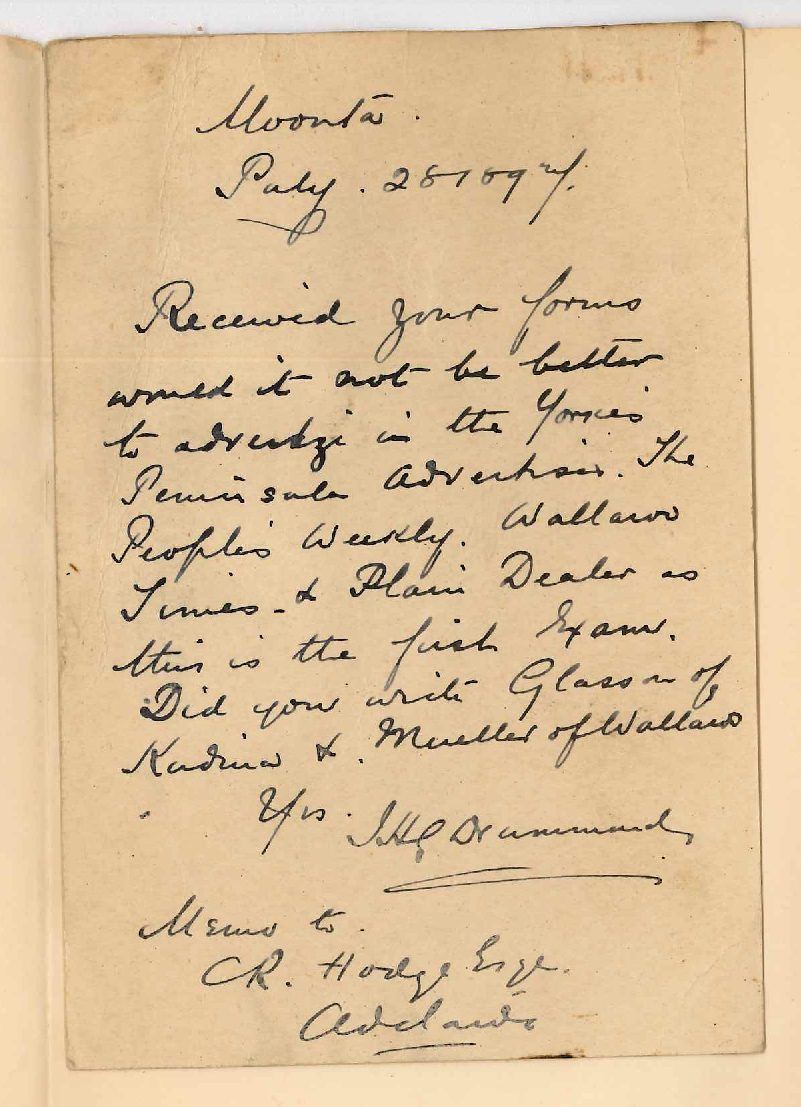 Moonta.
July. 28 1897.
Received your forms
would it not be better
to advertize in the Yorkes
Peninsula Advertiser. The
People's Weekly. Wallaroo
Times & Plain Dealer as
this is the first Exam.
Did you write Glasson of
Kadina & Mueller of Wallaroo
Yrs. J.H.C Drummond
Memo to
CR. Hodge Esqe.
Adelaide